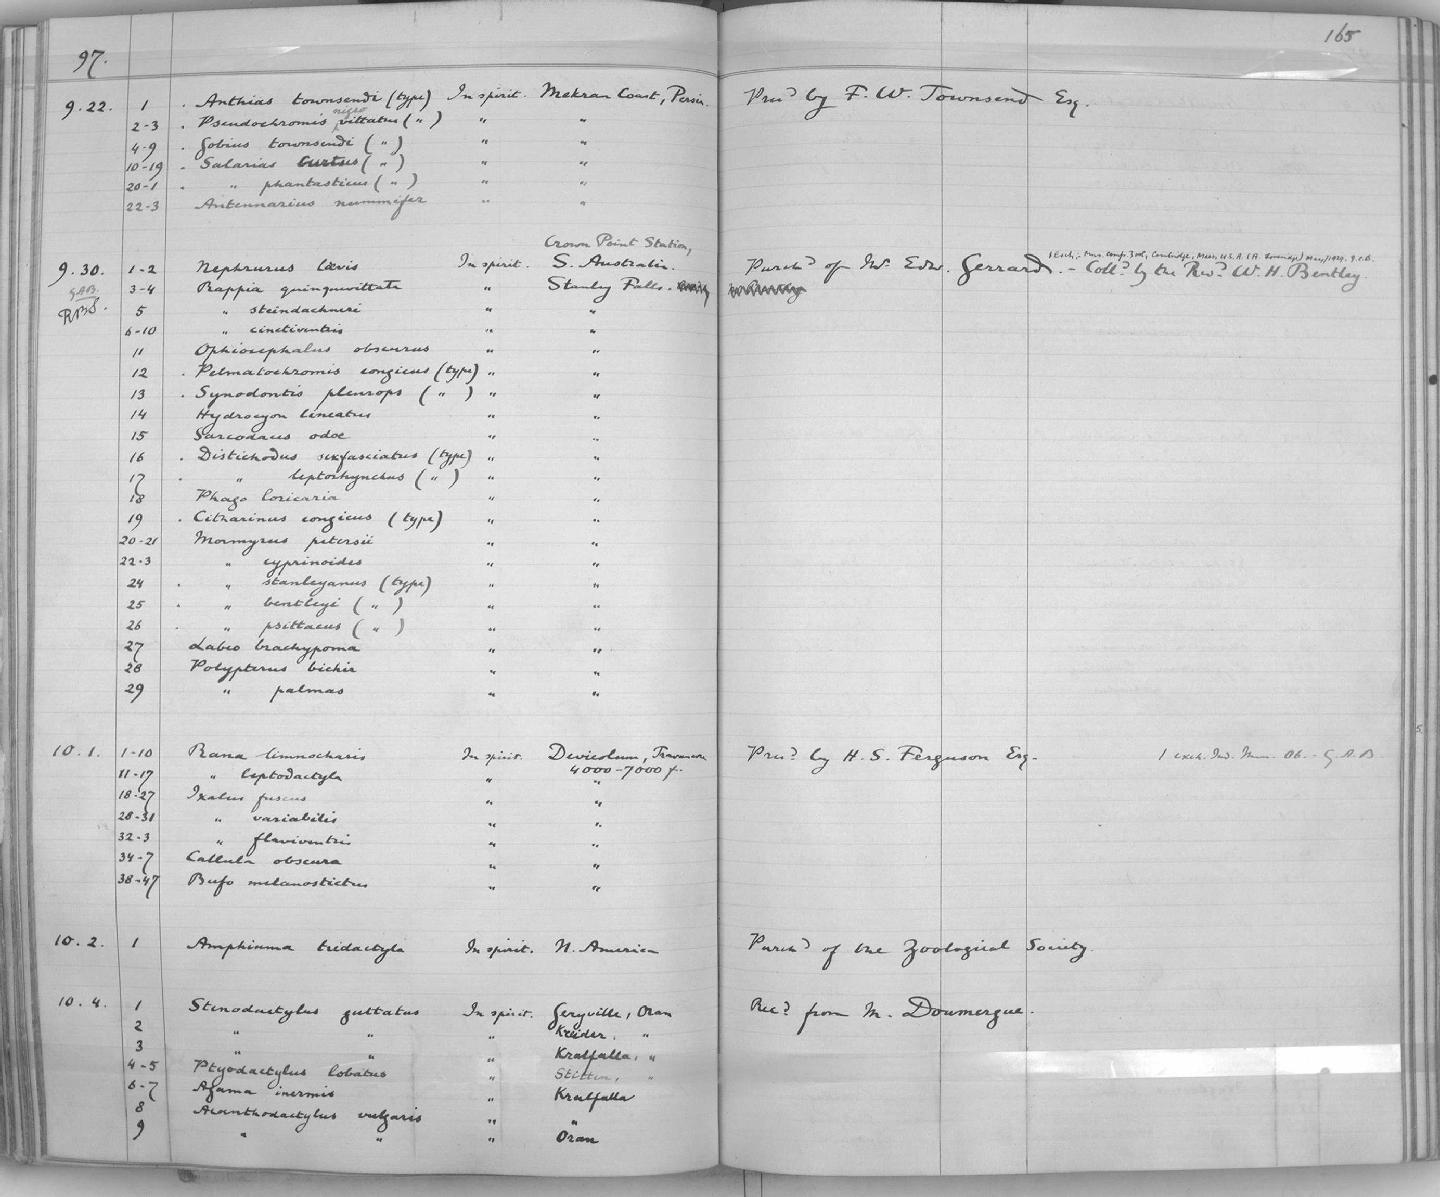 97.
165
9.22. 1 . Anthias townsendi (type) In spirit. Mekran Coast, Persia. Pres^d by F. W. Townsend Esq.
2-3 . Pseudochromis nigrovittatus ( " ) " "
4-9 . Gobius townsendi ( " ) " "
10-19 . Salarias ( " ) " "
20-1 . " phantasticus ( " ) " "
22-3 Antennarius nummifer " "
Crown Point Station,
9.30. 1-2 Nephrurus lævis In spirit. S. Australia. Purch^d of Mr Edw. Gerrard. - Coll^d by the Rev^d W. H. Bentley.
G.A.B. 3-4 Rappia quinquevittata " Stanley Falls.
5 " steindachneri " "
6-10 " cinctiventris " "
11 Ophiocephalus obscurus " "
12 . Pelmatochromis congicus (type) " "
13 . Synodontis pleurops ( " ) " "
14 Hydrocyon lineatus " "
15 Sarcodaces odoe " "
16 . Distichodus sexfasciatus (type) " "
17 . " leptorhynchus ( " ) " "
18 Phago loricaria " "
19 . Citharinus congicus (type) " "
20-21 Mormyrus petersii " "
22-3 " cyprinoides " "
24 . " stanleyanus (type) " "
25 . " bentleyi ( " ) " "
26 . " psittacus ( " ) " "
27 Labeo brachypoma " "
28 Polypterus bichir " "
29 " palmas " "
10.1. 1-10 Rana limnocharis In spirit. Devicolam, Travancore Pres^d by H. S. Ferguson Esq. 1 exch. Ind. Mus. - G.A.B
4000-7000 f.
11-17 " leptodactyla " "
18-27 Ixalus fuscus " "
28-31 " variabilis " "
32-3 " flaviventris " "
34-7 Callula obscura " "
38-47 Bufo melanostictus " "
10.2. 1 Amphiuma tridactyla In spirit. N. America Purch^d of the Zoological Society.
10.4. 1 Stenodactylus guttatus In spirit. Geryville, Oran Rec^d from M. Doumergue.
2 " " " Kreider, "
3 " " " Kralfalla, "
4-5 Ptyodactylus lobatus " "
6-7 Agama inermis " Kralfalla
8 Acanthodactylus vulgaris " "
9 " " " Oran